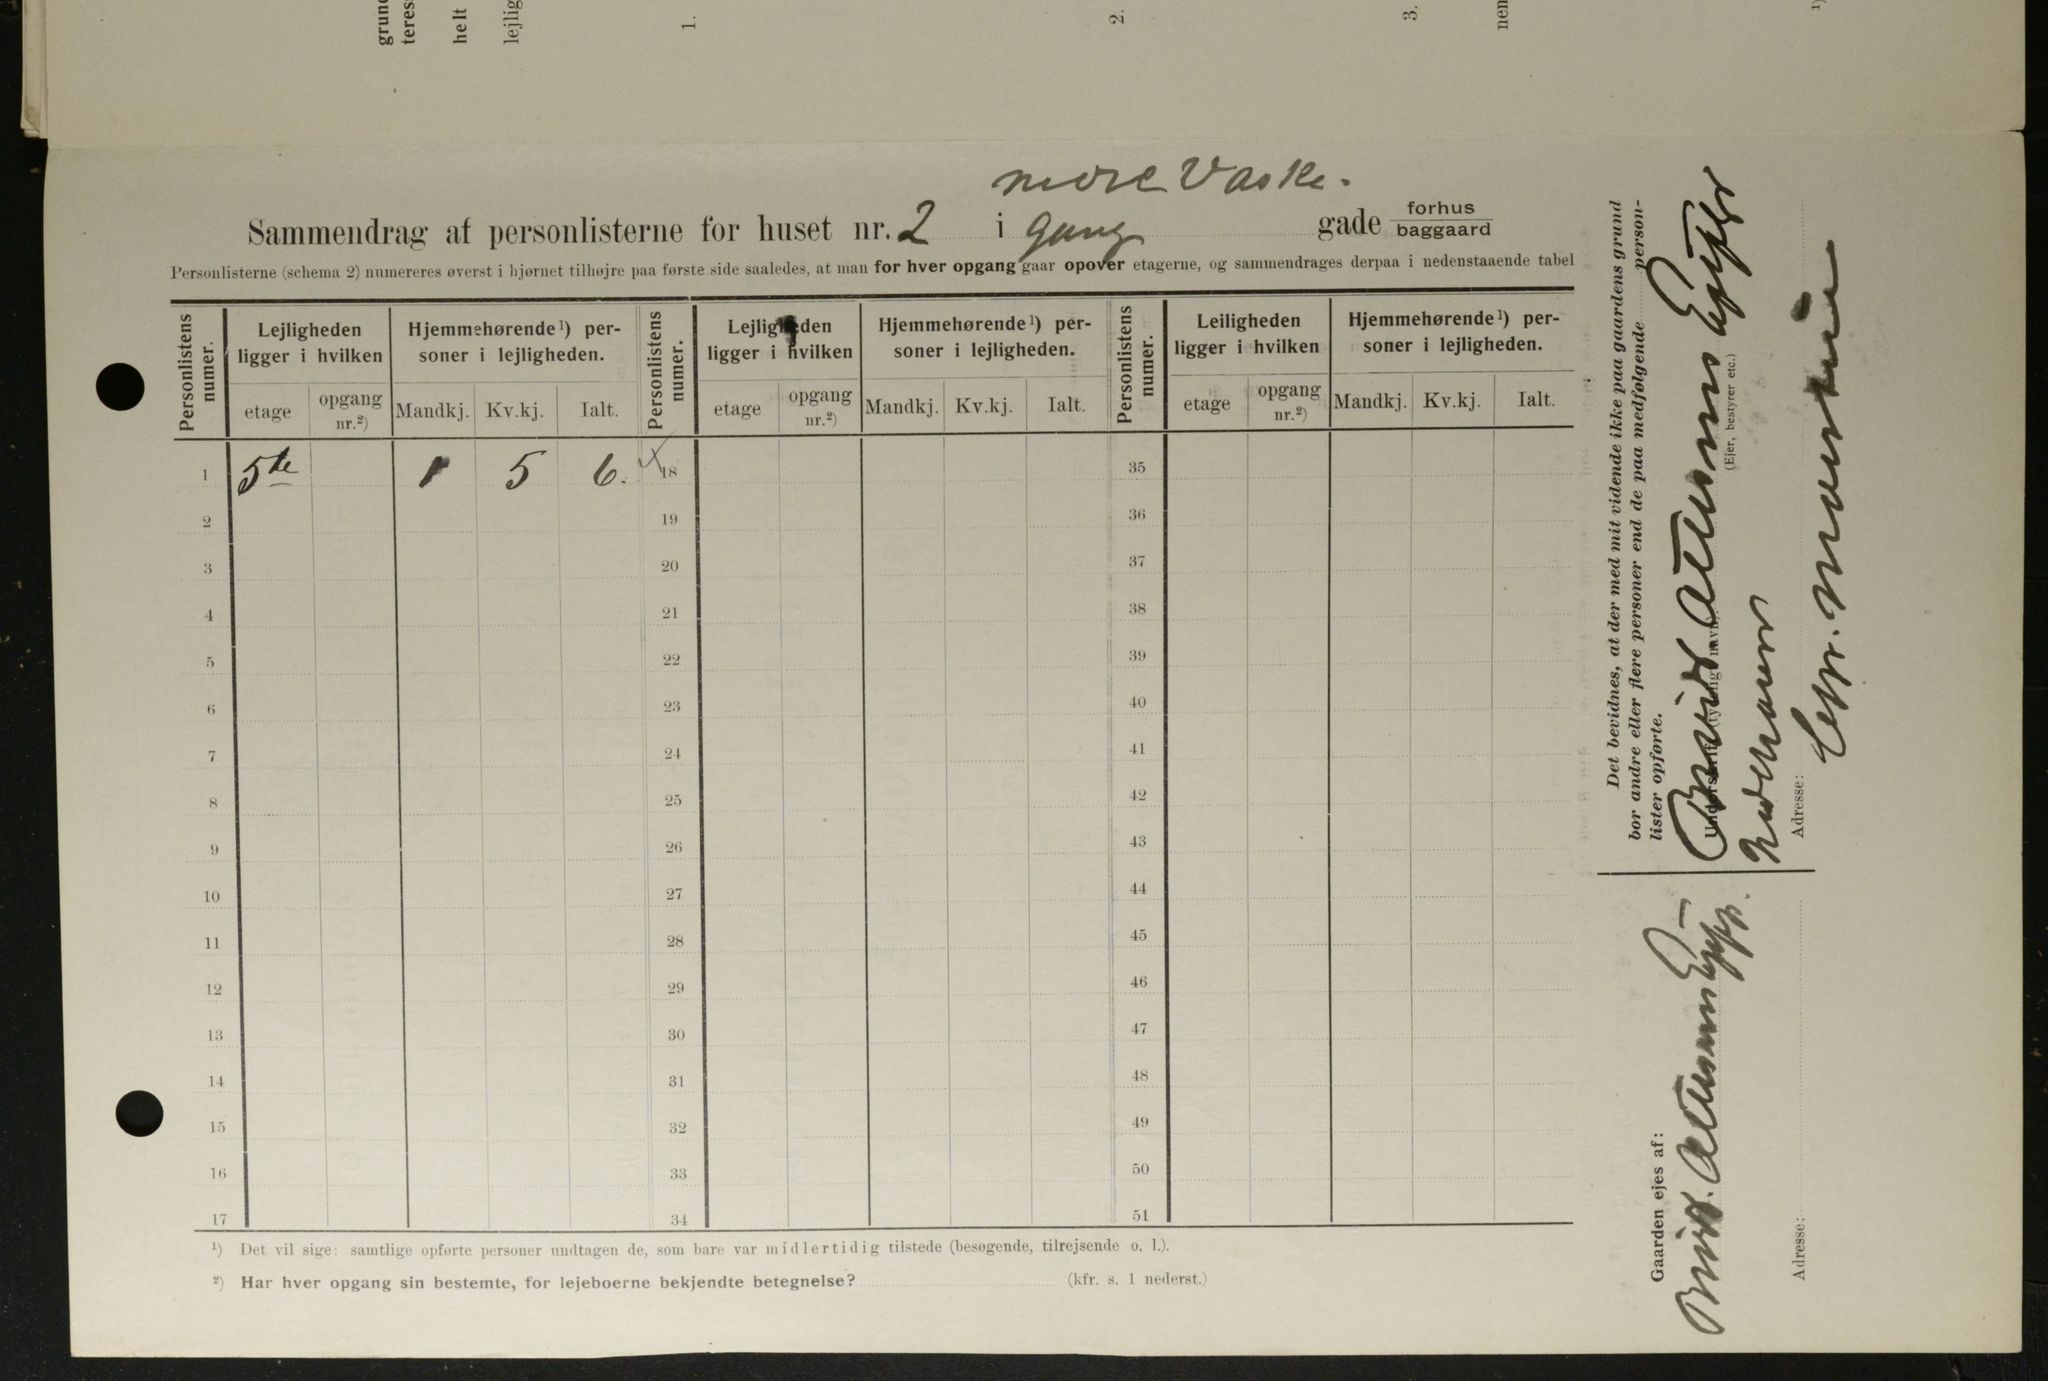 grund
teres
helt
lejlig
1.
2.
3.
nem
1)
nedre Vaske.
Sammendrag af personlisterne for huset nr. 2 i gang gade forhus
baggaard
Personlisterne (schema 2) numereres øverst i hjørnet tilhøjre paa første side saaledes, at man for hver opgang gaar opover etagerne, og sammendrages derpaa i nedenstaaende tabel
Personlistens numer.
Lejligheden ligger i hvilken
Hjemmehørende¹) personer i lejligheden.
Personlistens numer.
Lejligheden ligger i hvilken
Hjemmehørende¹) personer i lejligheden.
Personlistens numer.
Leiligheden ligger i hvilken
Hjemmehørende¹) personer i lejligheden.
etage opgang nr.²) Mandkj. Kv.kj. Ialt. etage opgang nr.²) Mandkj. Kv.kj. Ialt. etage opgang nr.²) Mandkj. Kv.kj. Ialt.
1 5te 1 5 6. 18 35
2 19 36
3 20 37
4 21 38
5 22 39
6 23 40
7 24 41
8 25 42
9 26 43
10 27 44
11 28 45
12 29 46
13 30 47
14 31 48
15 32 49
16 33 50
17 34 51
¹) Det vil sige: samtlige opførte personer undtagen de, som bare var midlertidig tilstede (besøgende, tilrejsende o. l.).
²) Har hver opgang sin bestemte, for lejeboerne bekjendte betegnelse? (kfr. s. 1 nederst.)
Det bevidnes, at der med mit vidende ikke paa gaardens grund
bor andre eller flere personer end de paa medfølgende personlister opførte.
Underskrift (tydelig navn):
(Ejer, bestyrer etc.)
Adresse:
Gaarden ejes af:
Adresse: